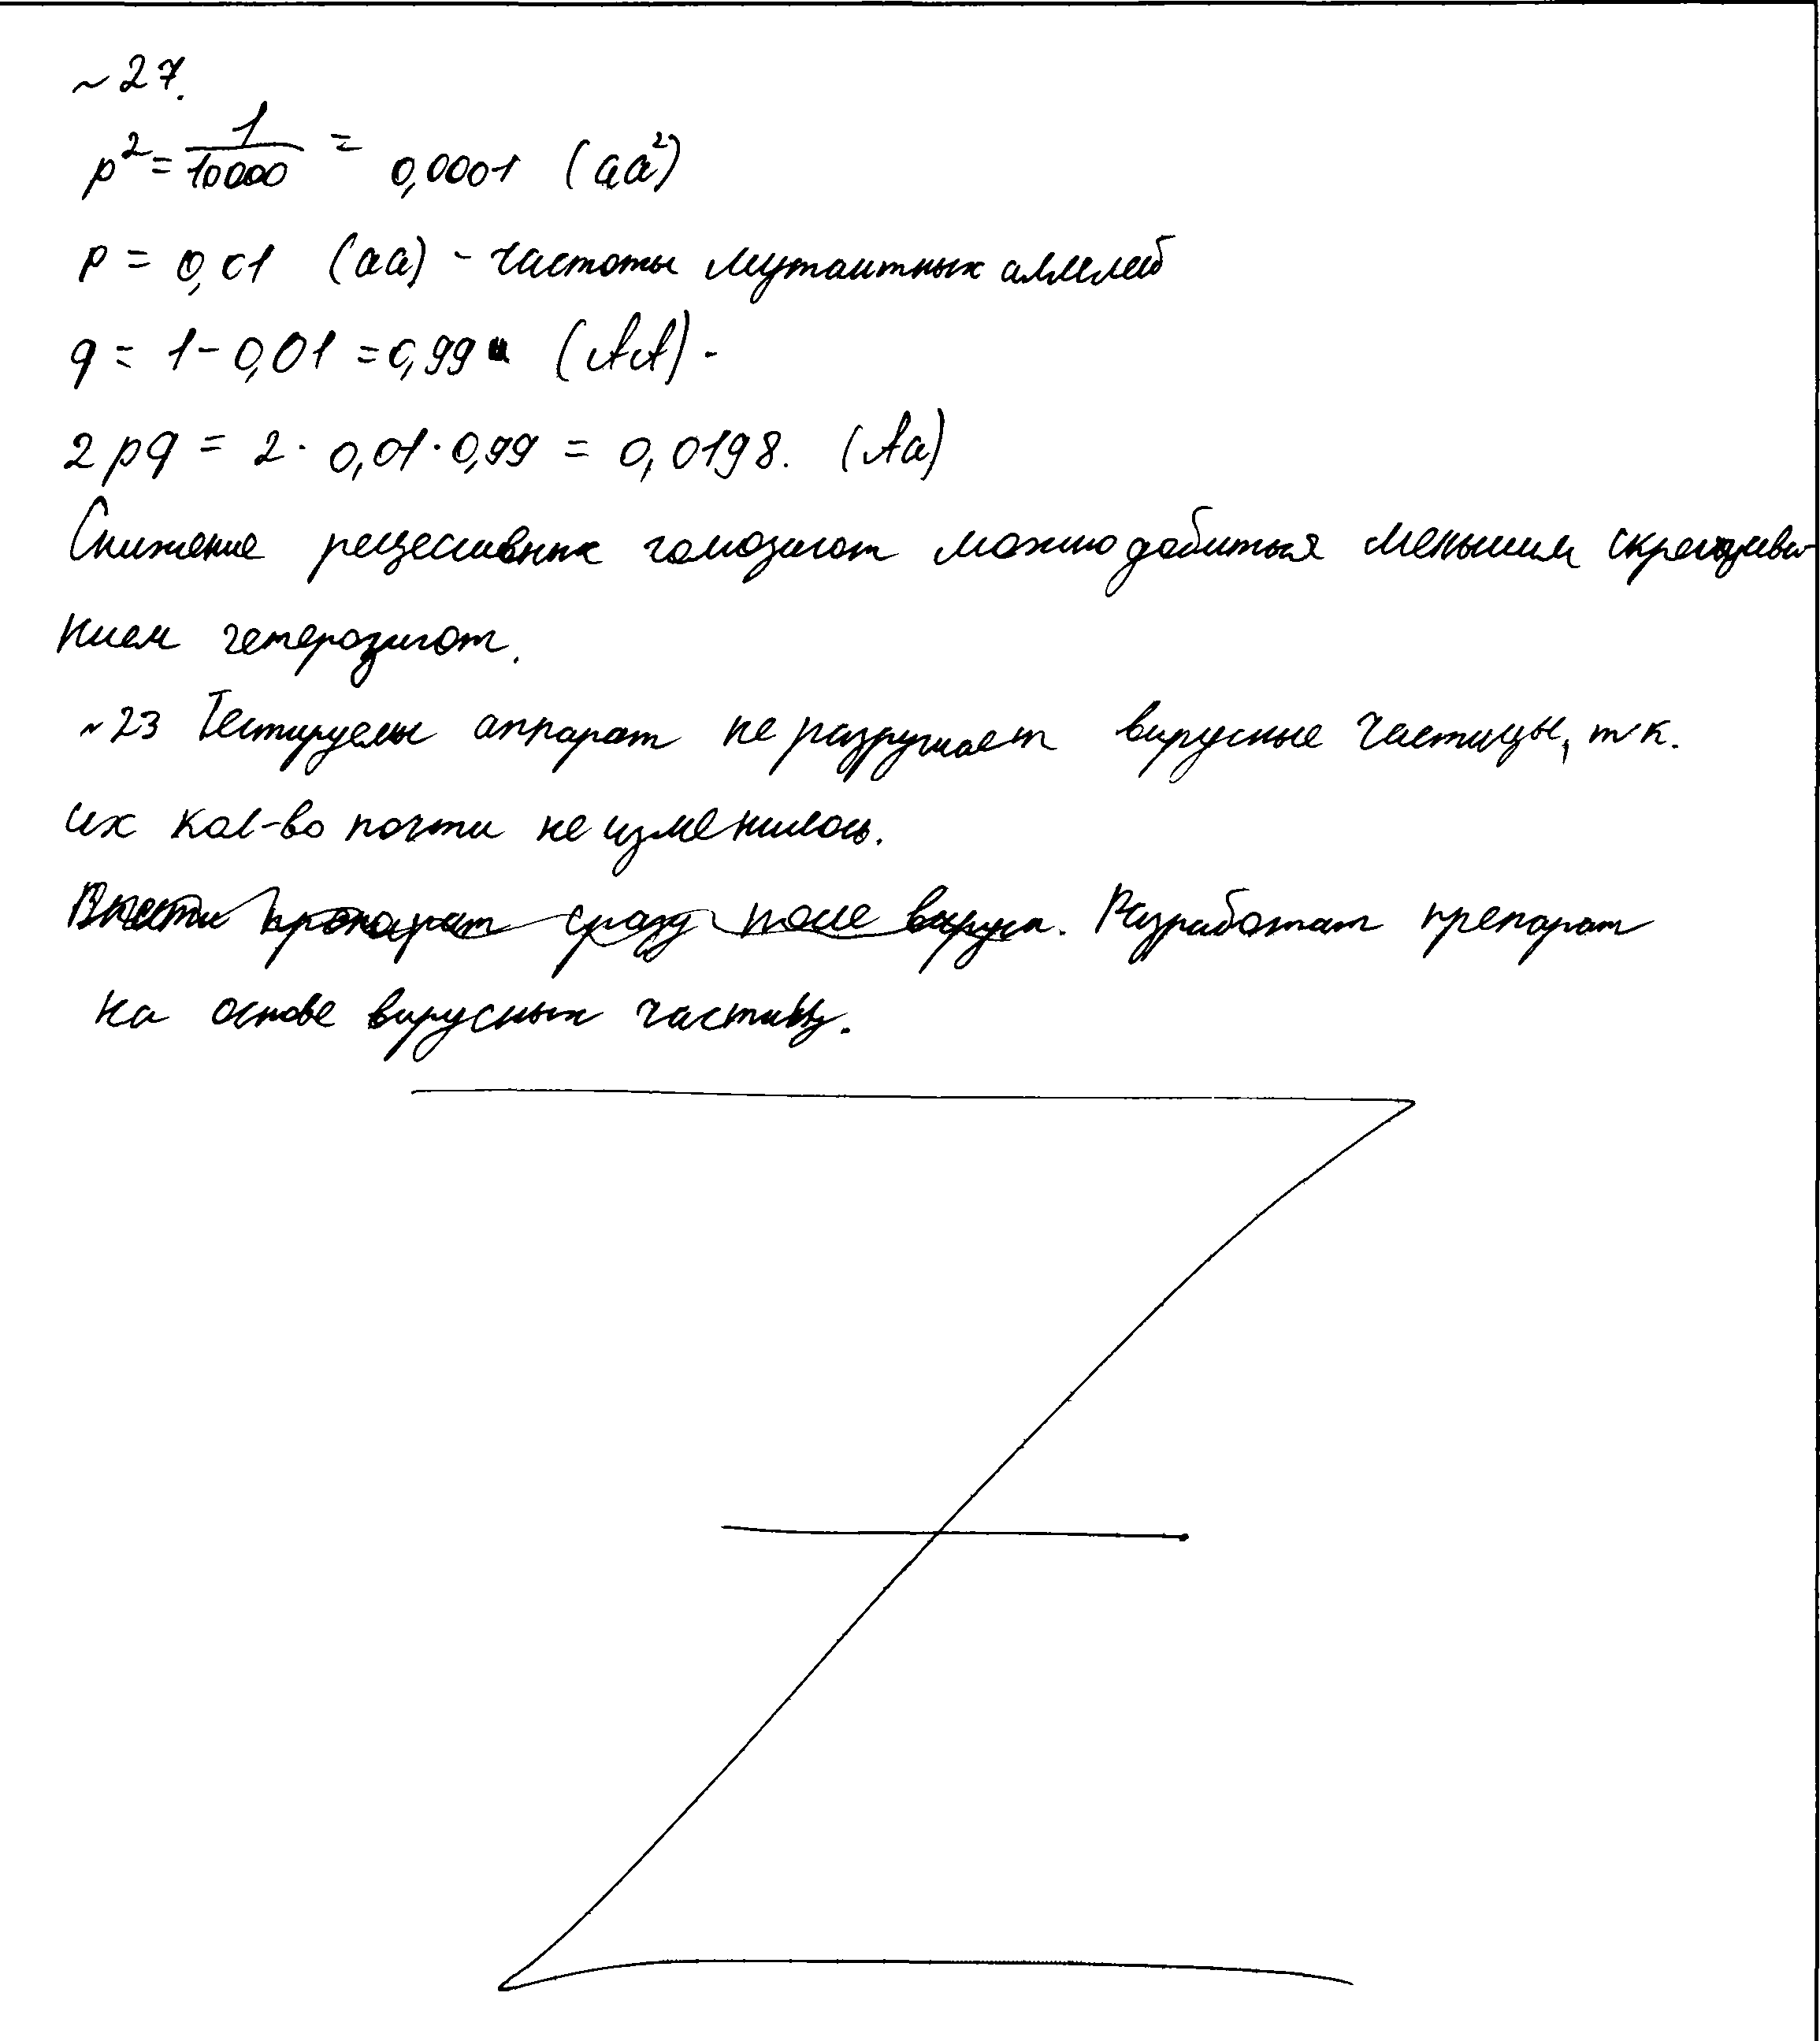 ~27.
p² = 1/10000 = 0,0001 (aa²)
p = 0,01 (aa) - частоты мутантных аллелей
q = 1 - 0,01 = 0,99 (AA) -
2pq = 2 · 0,01 · 0,99 = 0,0198. (Aa)
Снижение рецессивных гомозигот можно добиться меньшим скрещива-
нием гетерозигот.
~23 Тестируемы аппарат не разрушает вирусные частицы, т.к.
их кол-во почти не изменилось.
Внести препарат сразу после вируса. Разработат препарат
на основе вирусных частиц.